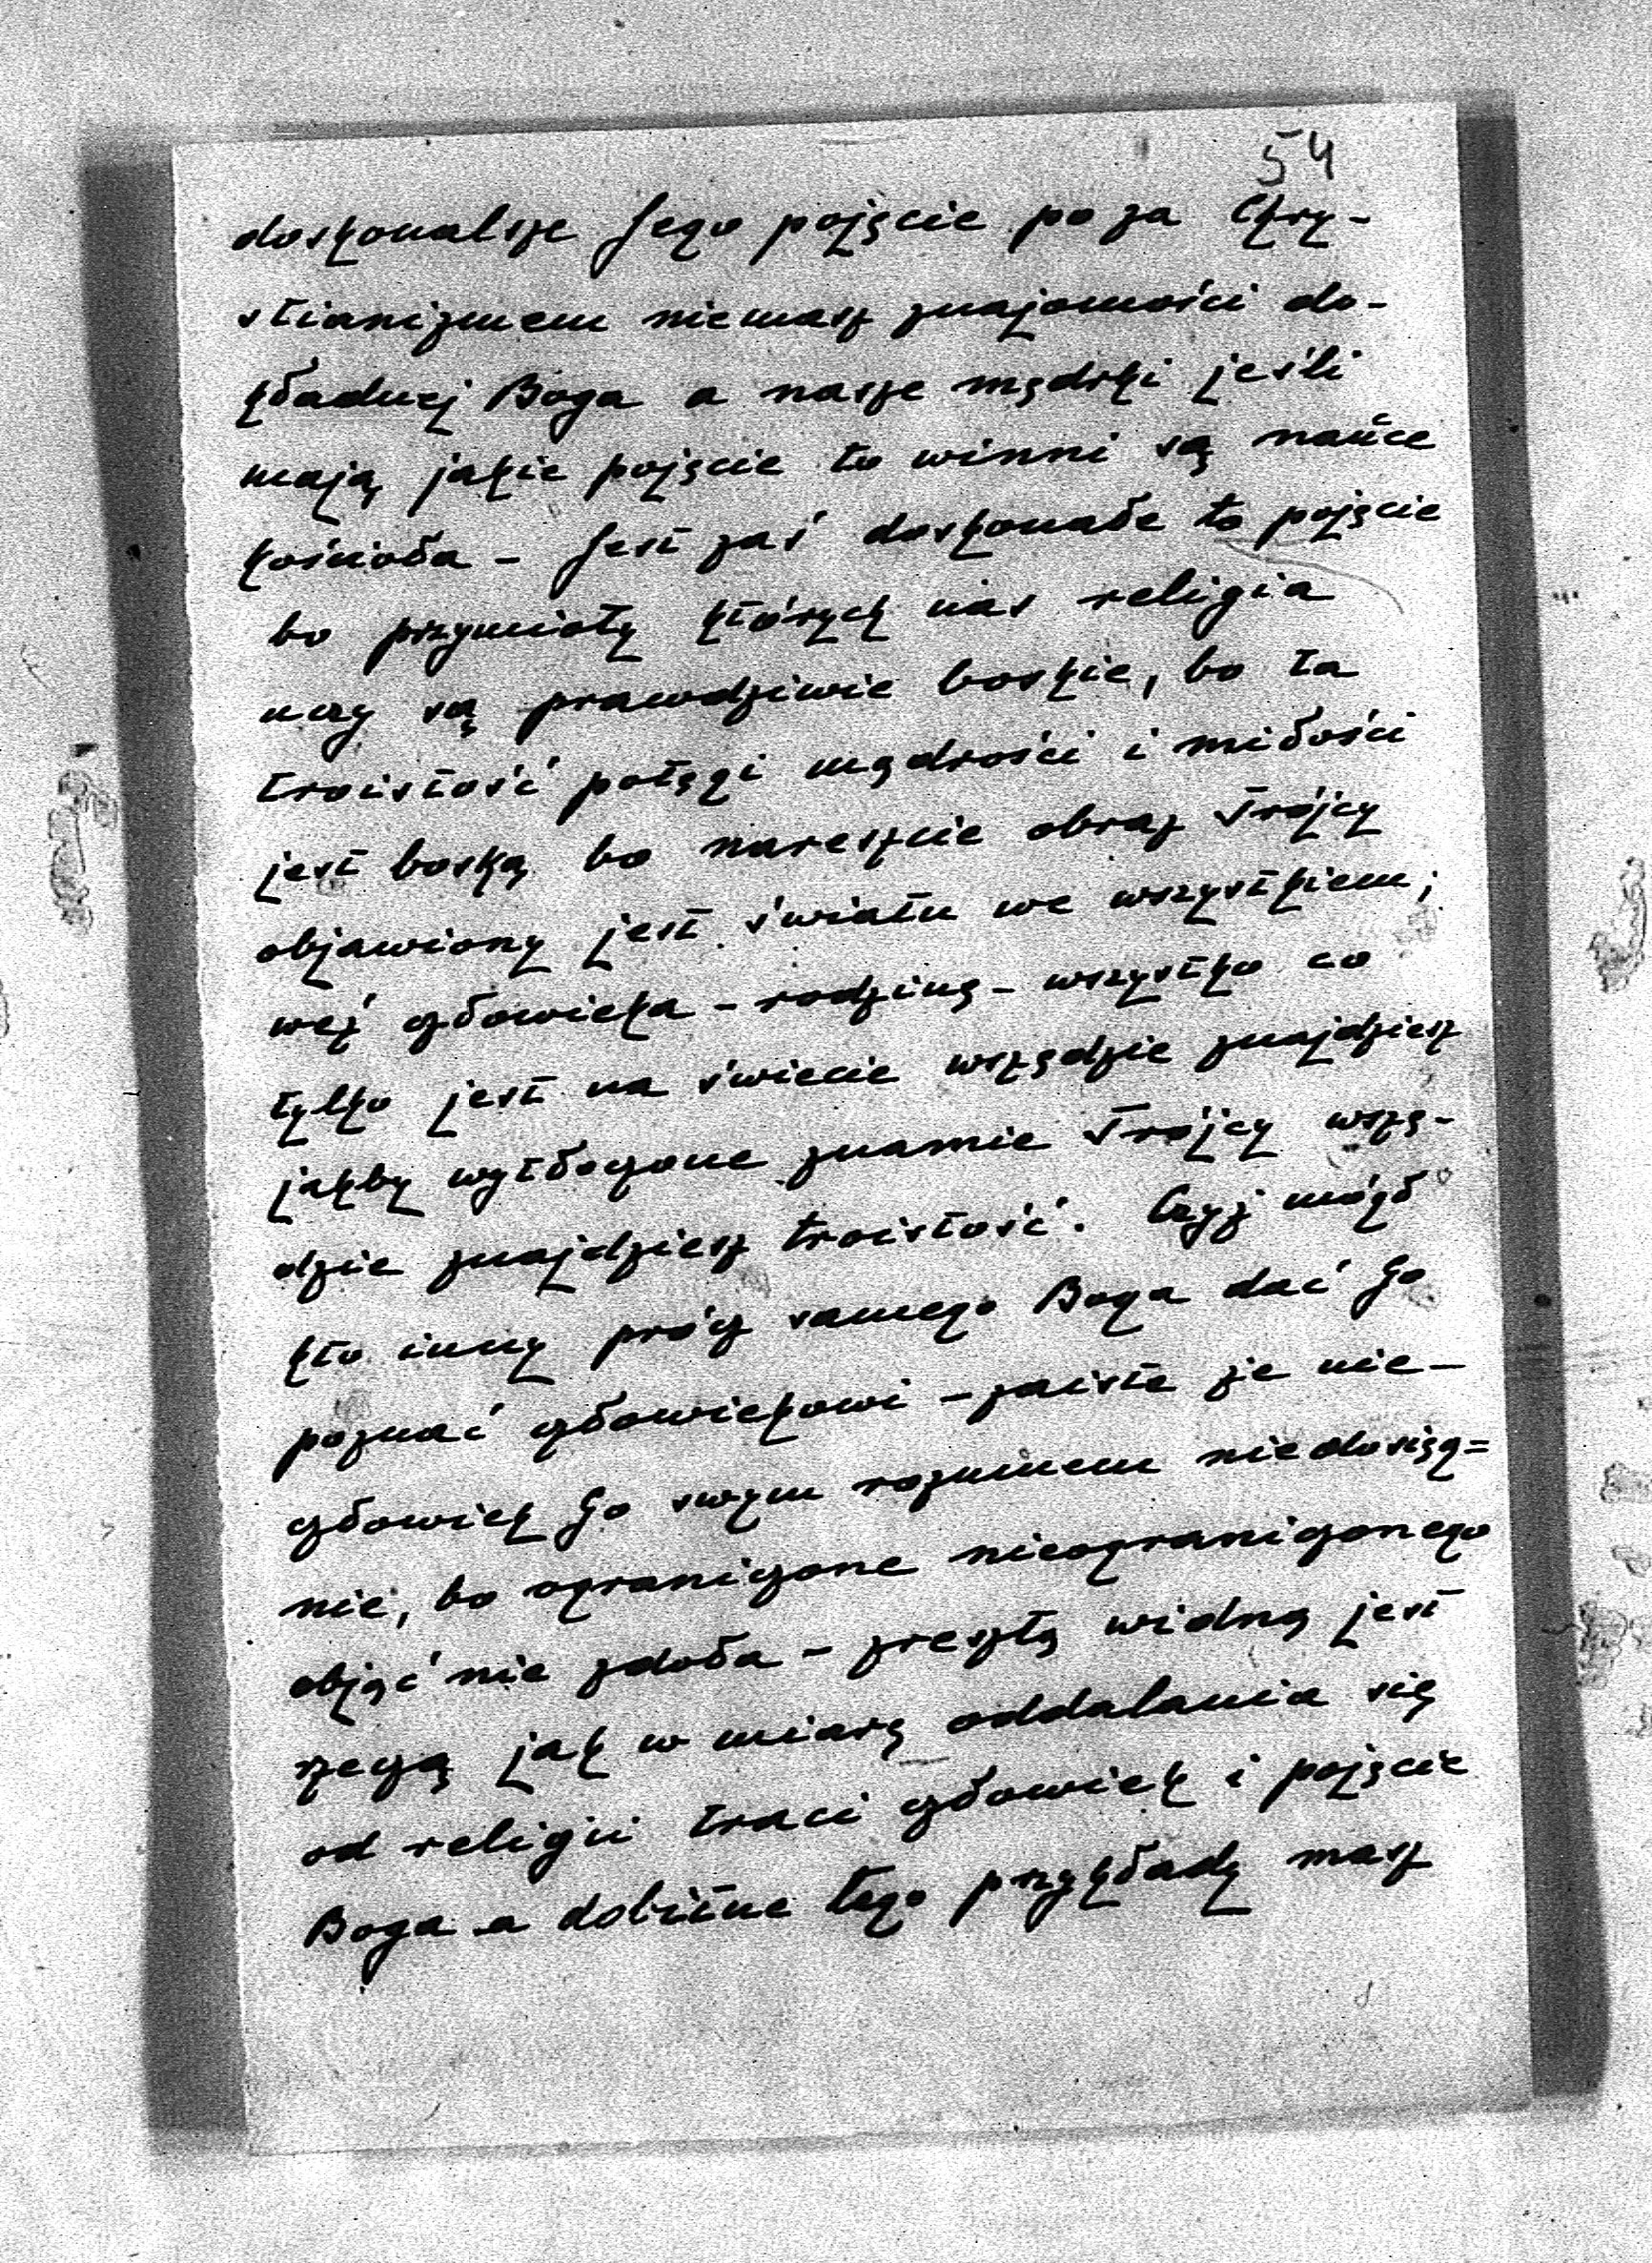 54
doskonalsze Jego pojęcie po za Chry-
stianizmem niemasz znajomości do-
kładnej Boga a nasze mędrki jeśli
mają jakie pojęcie to winni są nauce
kościoła - Jest zaś doskonałe to pojęcie
bo przymioty których nas religia
uczy są prawdziwie boskie, bo ta
troistość potęgi mądrości i miłości
jest boską bo nareszcie obraz Trójcy
objawiony jest światu we wszystkiem;
weź człowieka - rodzinę - wszystko co
tylko jest na świecie wszędzie znajdziesz
jakby wytłoczone znamie Trójcy wszę-
dzie znajdziesz troistość. Czyż mógł
kto inny prócz samego Boga dać Go
poznać człowiekowi - zaiste że nie -
człowiek Go swym rozumem niedosięg=
nie, bo ograniczone nieograniczonego
objąć nie zdoła - zresztą widną jest
rzeczą jak w miarę oddalania się
od religii traci człowiek i pojęcie
Boga a dobitne tego przykłady masz